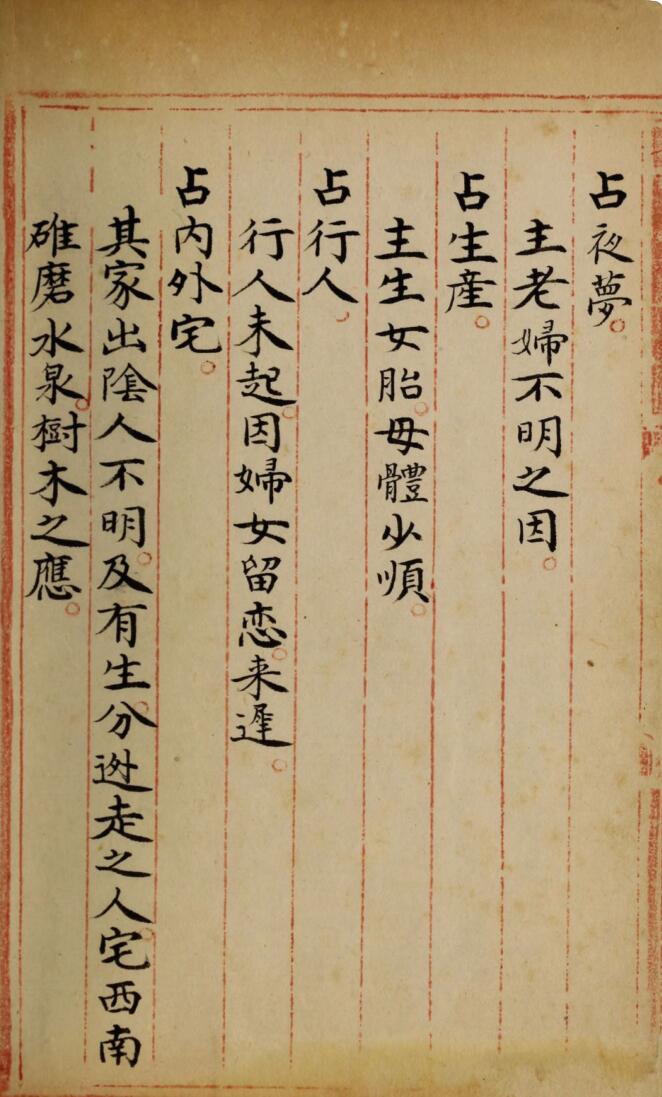 占夜夢。
主老婦不明之因。
占生産。
主生女胎。母體少順。
占行人。
行人未起。因婦女留恋。来遲。
占内外宅。
其家出陰人不明。及有生分迯走之人。宅西南
碓磨水泉。樹木之應。